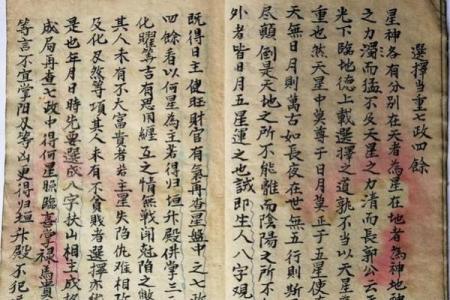 選擇當重七政四餘
星神各有分別在天者為星在地者為神地
之力濁而猛不及天星之力清而長郭公云
光下臨地德上載選擇之道孰不當以天星
重也然天星中莫尊于日月莫正于五星使
天無日月則萬古如長夜在世無五行則斯
盡顛倒是天地之所不能離而陰陽之所不
外者皆日月五星運之也誠即生人八字觀
既得日主健旺財官有氣再查星盤中之七政
四餘看以何星為主若得歸垣升殿併掌三
化曜等吉有恩用纏互之情無戰鬪尅陷之敝
其人未有不大富貴者若主星失陷仇難相
及化及然等項其人未有不貧賤者選擇亦
是也年月日時先要選成八字扶山相主成格
成局再查七政中得何星照臨喜學祿馬貴
等言不宜當陽及等凶更得垣升殿不犯